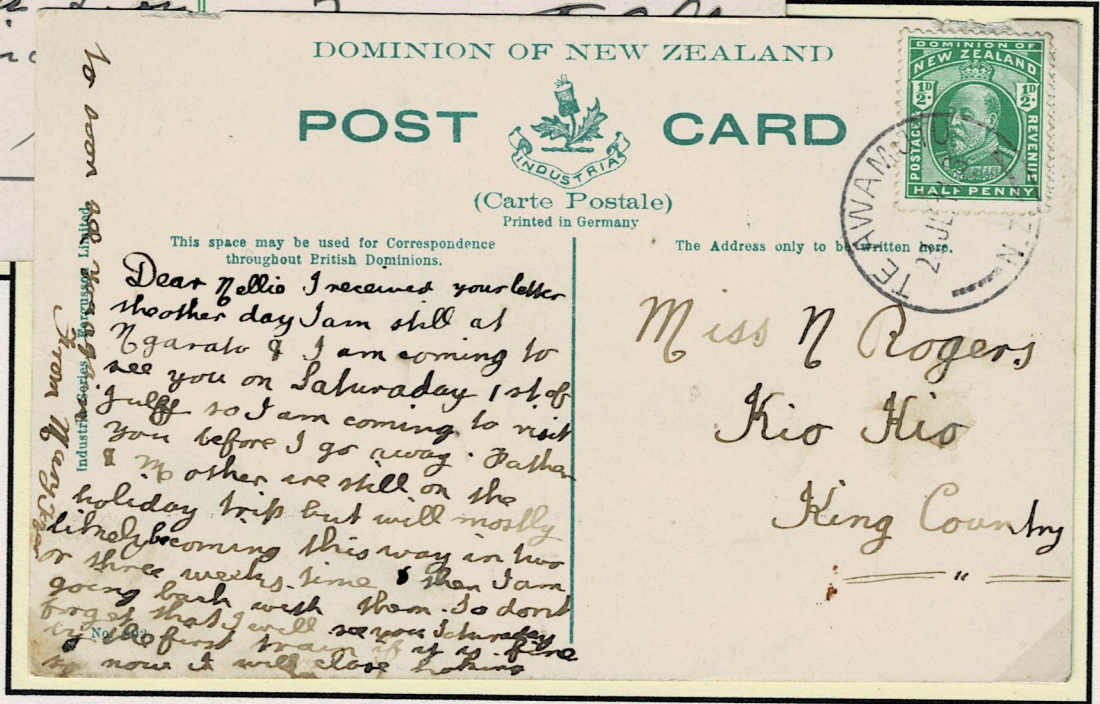 DOMINION OF NEW ZEALAND
POST CARD
INDUSTRIA
(Carte Postale)
Printed in Germany
This space may be used for Correspondence
throughout British Dominions.
The Address only to be written here.
DOMINION OF
NEW ZEALAND
½D
½D
POSTAGE
REVENUE
HALF PENNY
TE AWAMUTU
N.Z.
Dear Nellie I received your letter
the other day I am still at
Ngarato & I am coming to
see you on Saturaday 1st of
July so I am coming to visit
you before I go away. Father
& Mother are still on the
holiday trip but will mostly
likely be coming this way in two
or three weeks time & then I am
going back with them. So dont
forget that I will see you Saturaday
by the first train if it is fine
so now I will close hoking
to soon
From Mary
Miss N Rogers
Kio Kio
King Country
Industria Series Fergusson Limited
No.